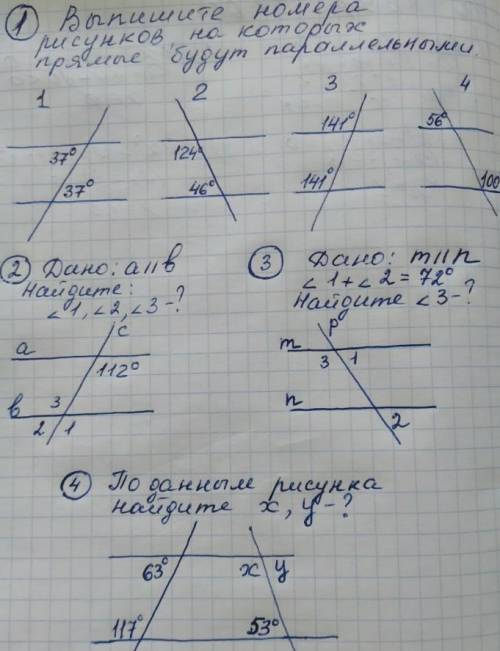 ① Выпишите номера
рисунков, на которых
прямые будут параллельными.
1 2 3 4
37° 37°
124° 46°
141° 141°
56° 100
② Дано: a||в
Найдите:
∠1, ∠2, ∠3-?
c
a
112°
в 3
2 1
③ Дано: m||n
∠1+∠2=72°
Найдите ∠3-?
p
m
3 1
n
2
④ По данным рисунка
найдите x, y-?
63° x y
117° 53°